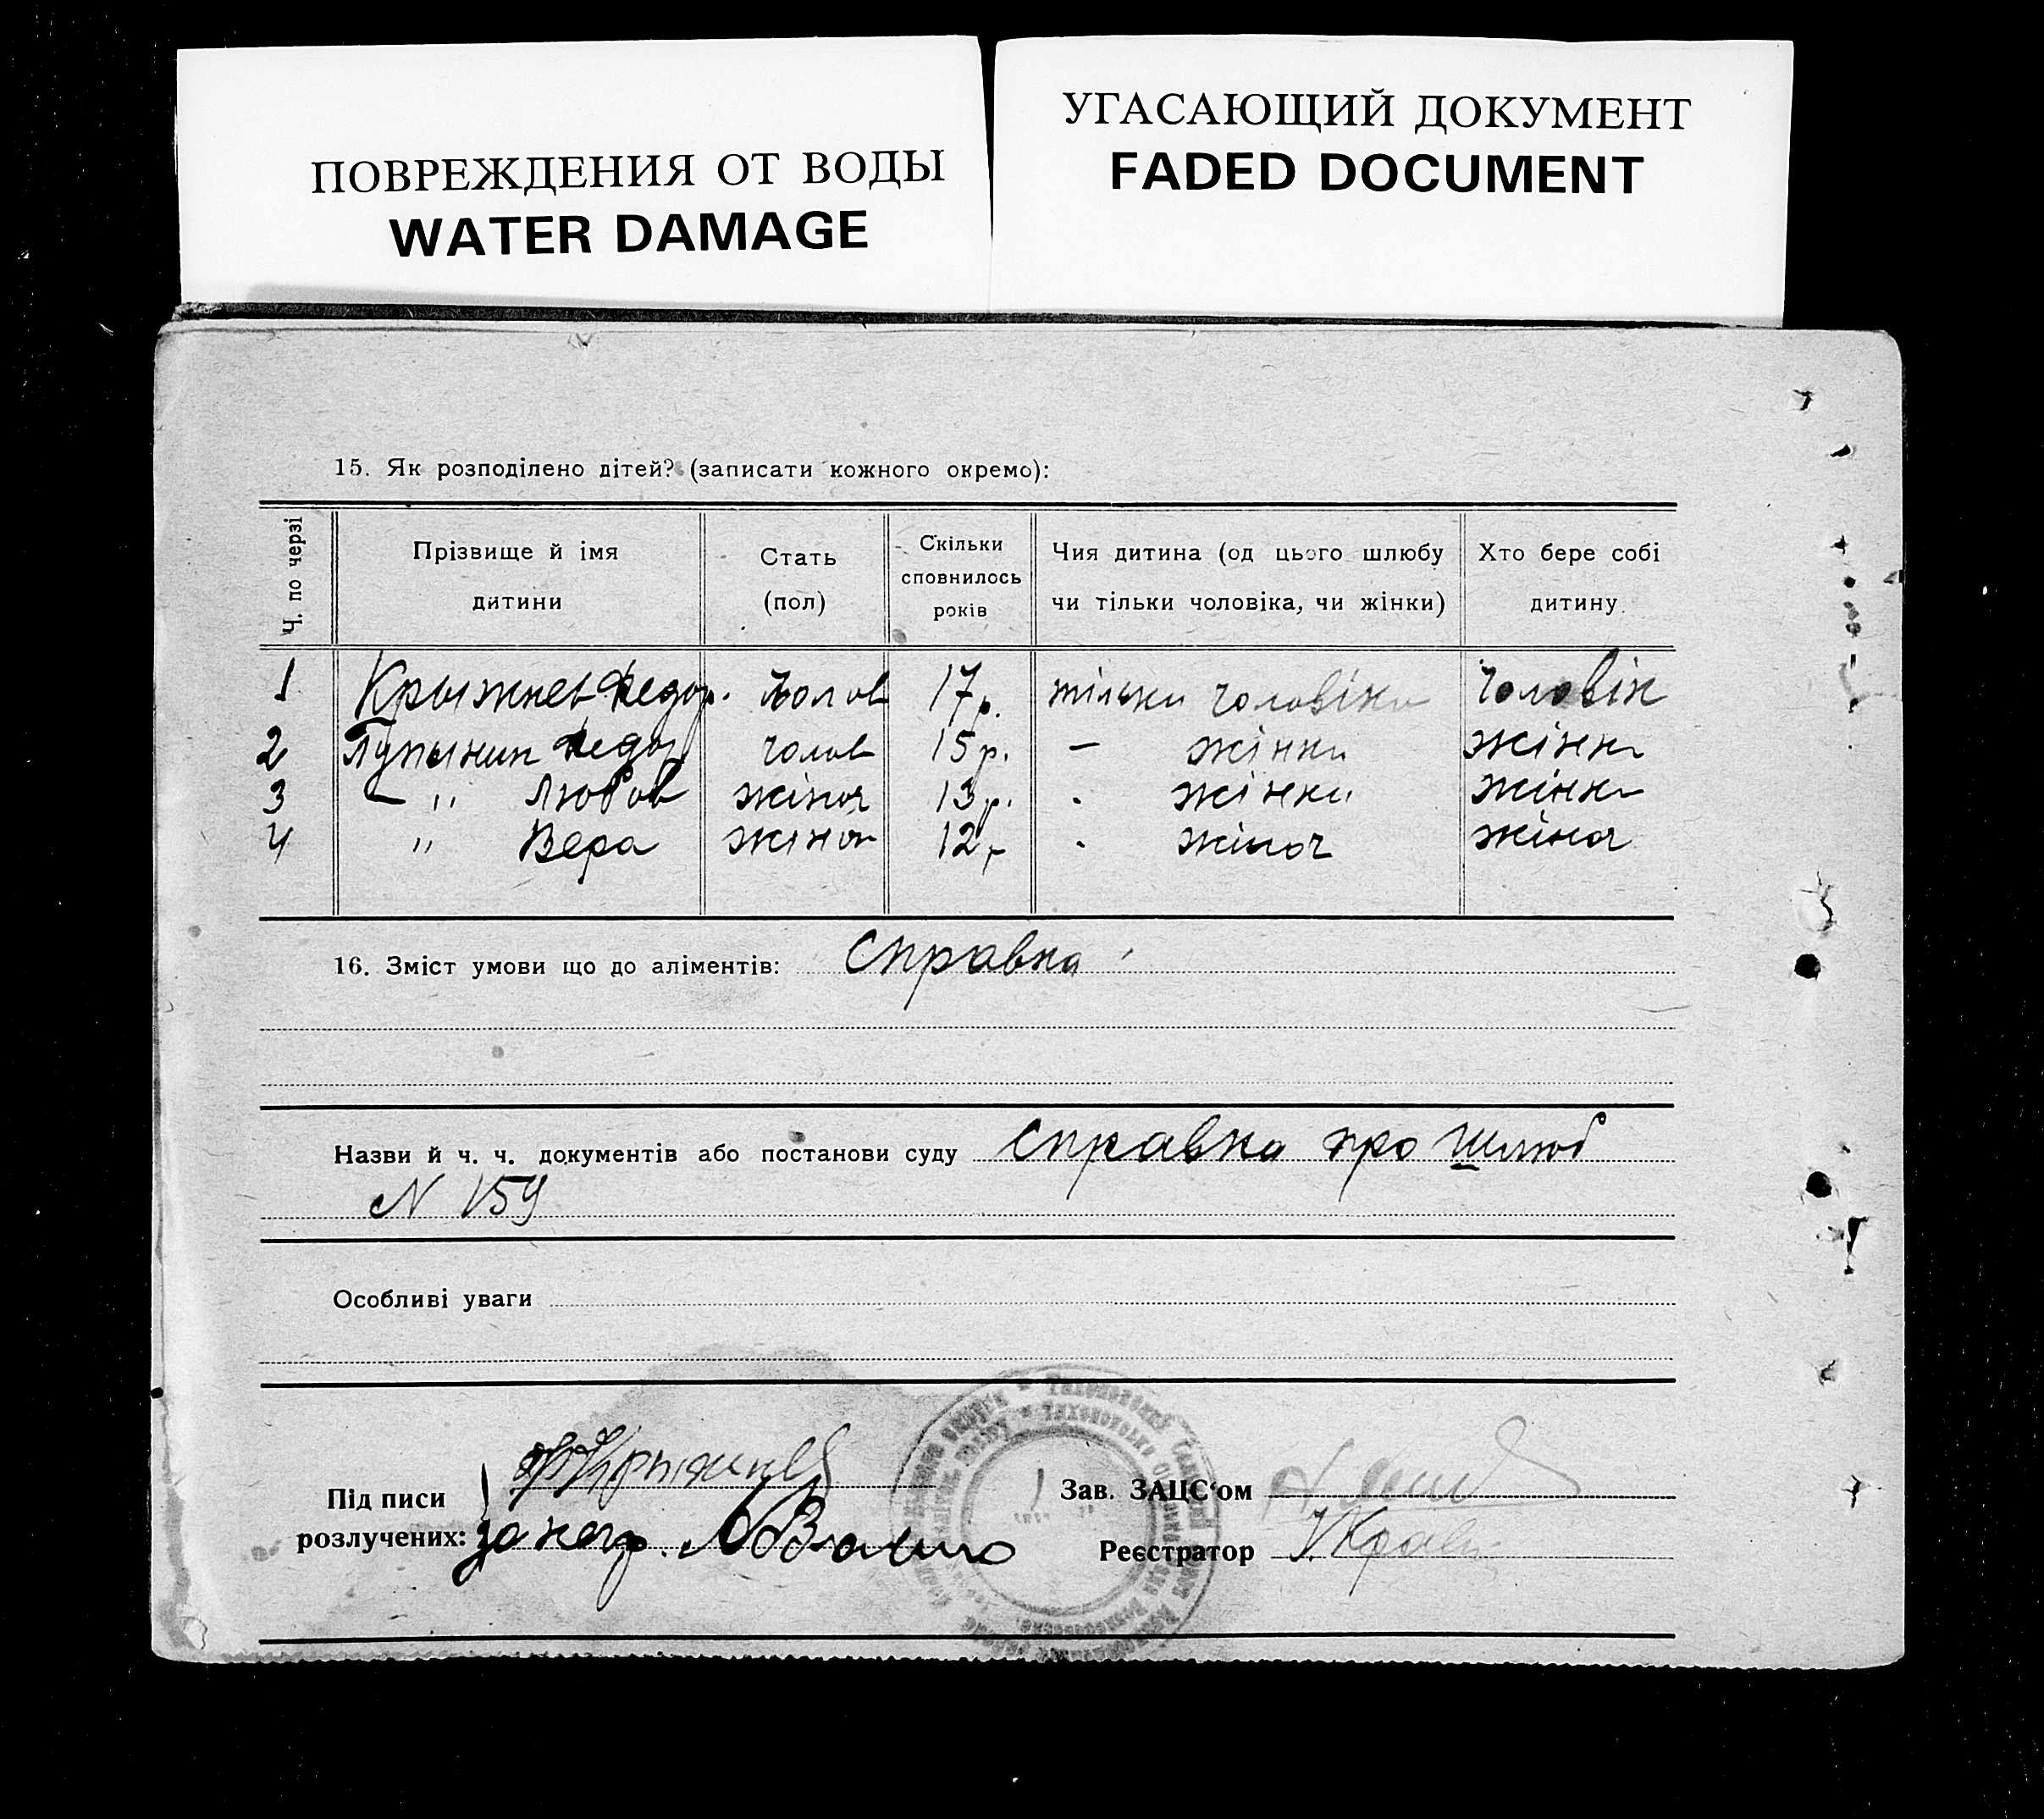 ПОВРЕЖДЕНИЯ ОТ ВОДЫ
WATER DAMAGE
УГАСАЮЩИЙ ДОКУМЕНТ
FADED DOCUMENT
15. Як розподілено дітей? (записати кожного окремо):
Ч. по черзі
Прізвище й імя дитини
Стать (пол)
Скільки сповнилось років
Чия дитина (од цього шлюбу чи тільки чоловіка, чи жінки)
Хто бере собі дитину
1 Крыжнев Федор. чолов 17 р. тільки чоловіка чоловік
2 Пупынин Федор чолов 15 р. — жінки жінка
3 — " Любов жіноч 13 р. . жінки жінка
4 " Вера жіноч 12 р . жіноч жіноч
16. Зміст умови що до аліментів: Справка
Назви й ч. ч. документів або постанови суду Справка про шлюб
N 159
Особливі уваги
Під писи розлучених:
за негр.
Зав. ЗАЦС'ом
Реєстратор